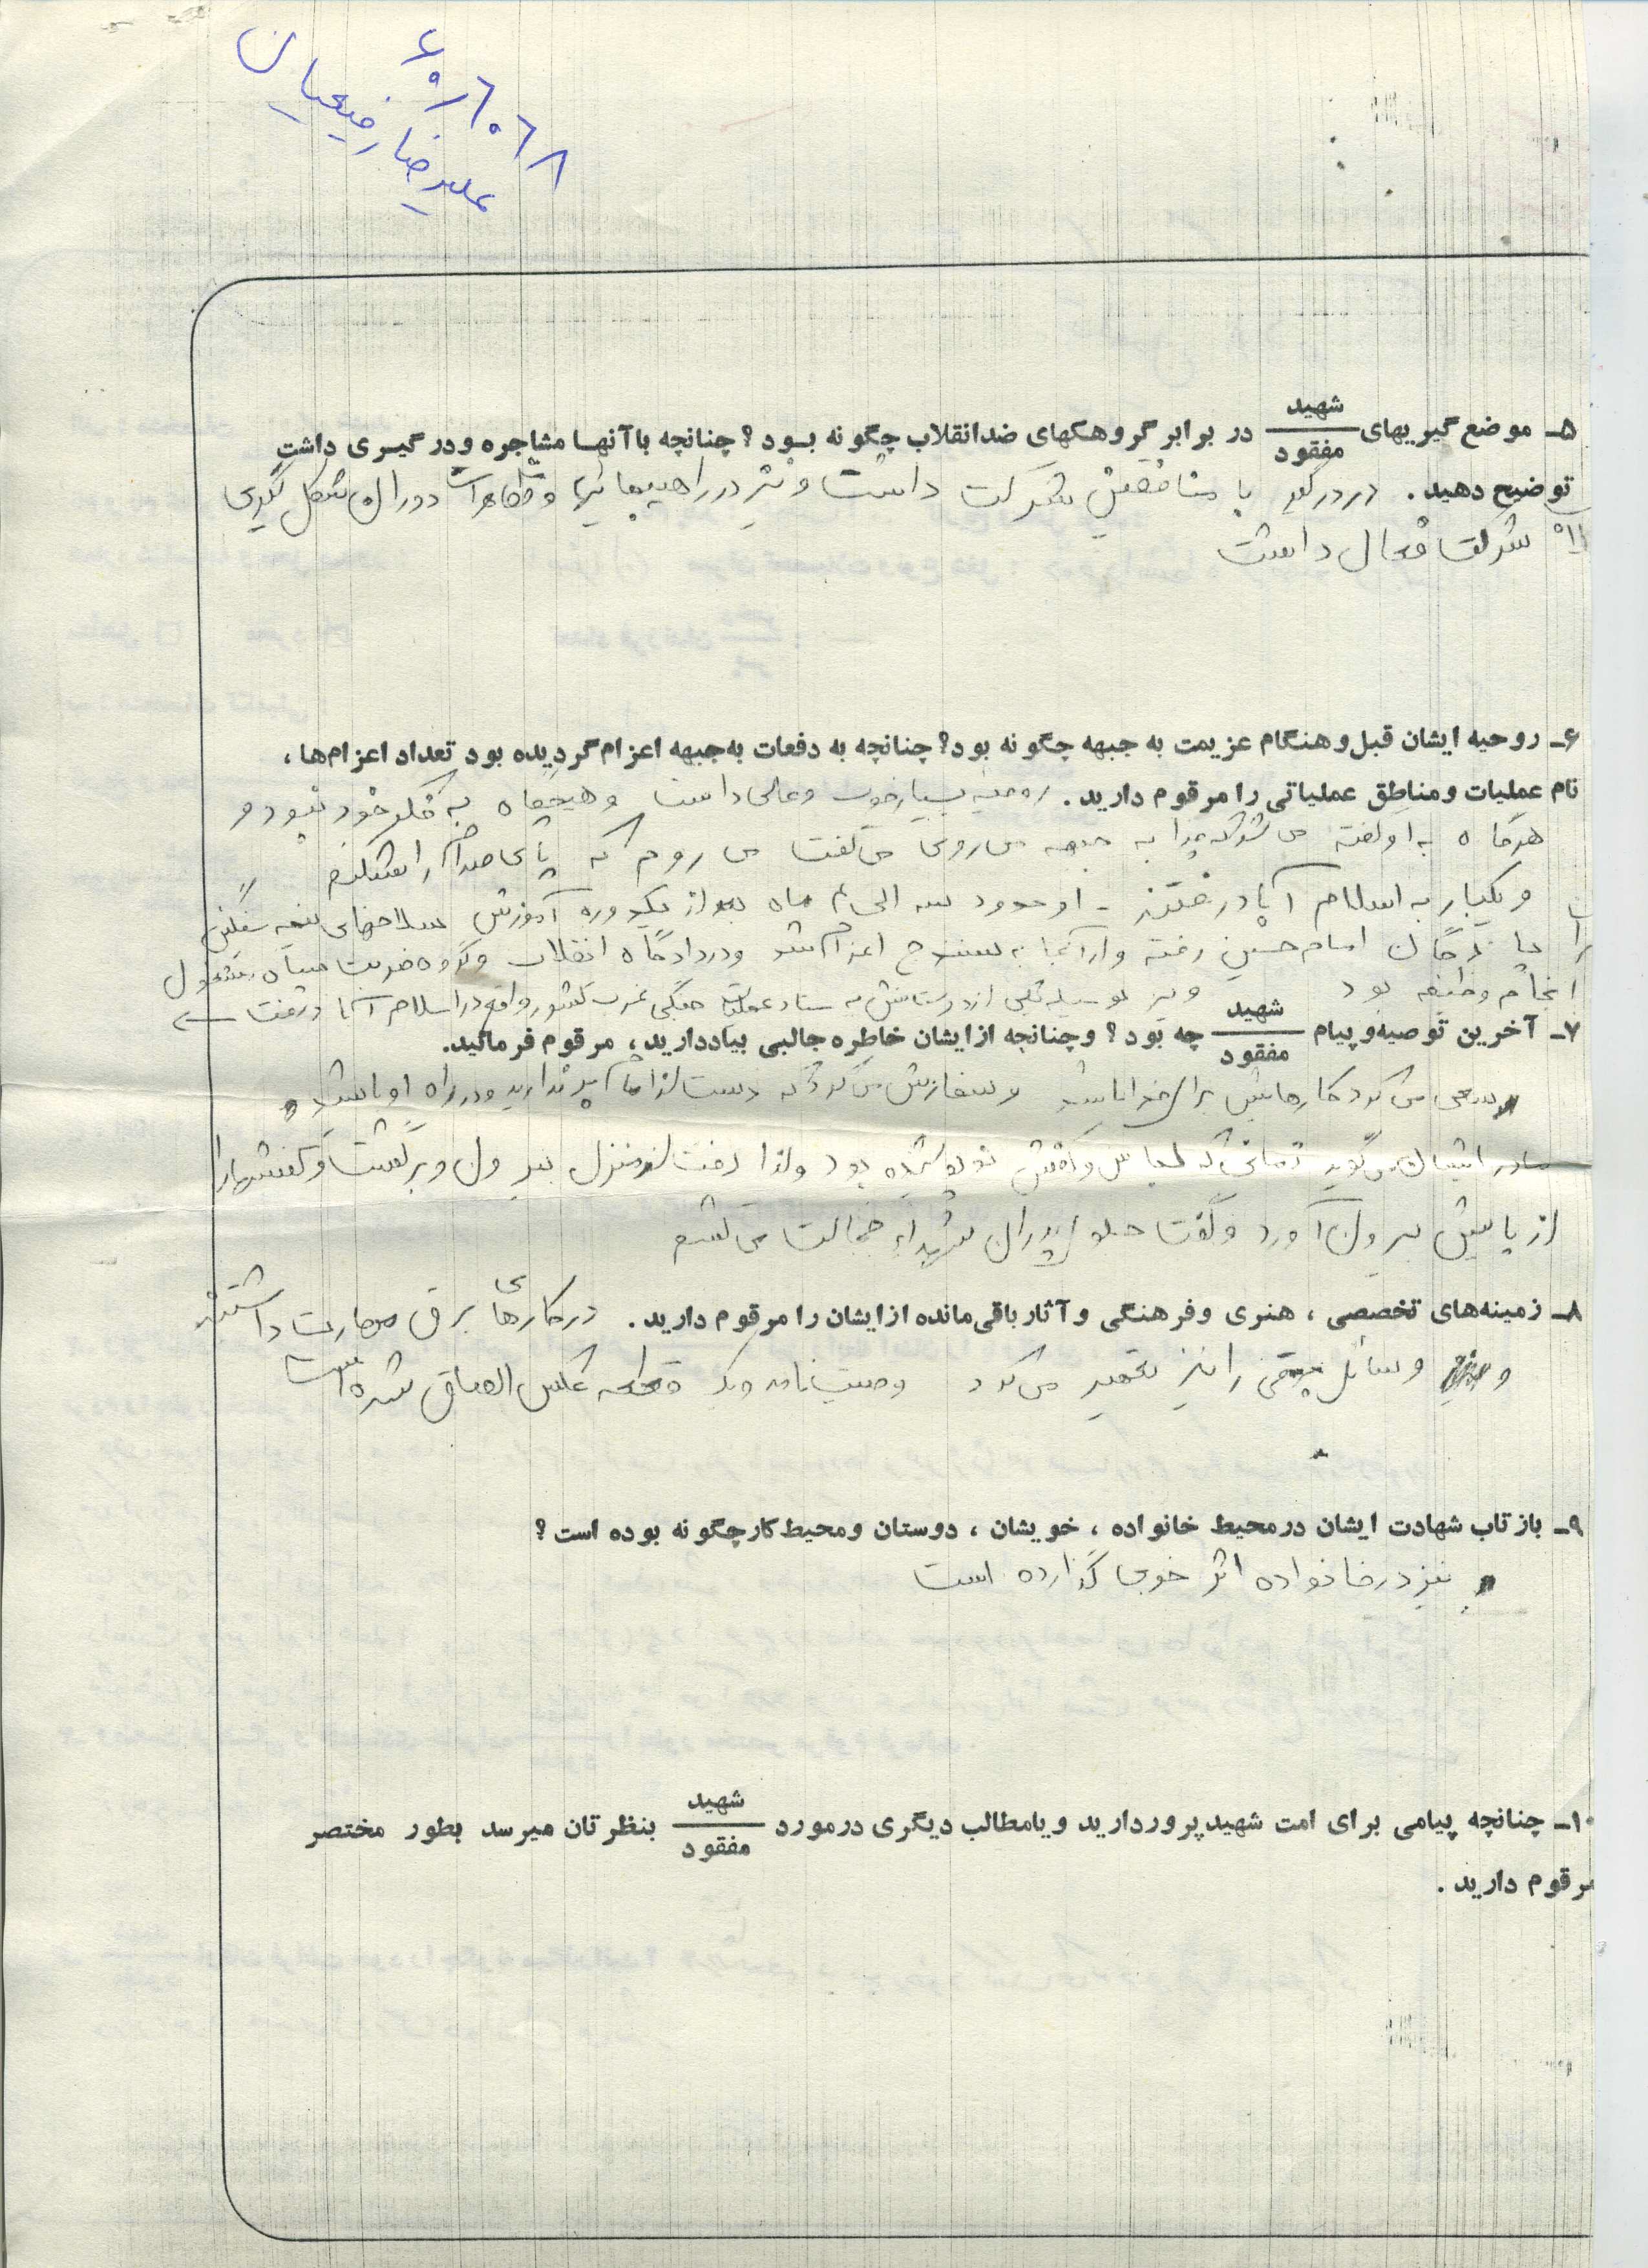 ۶۹۸۶۰۶۸
علیرضا رفیعیان
۵ـ موضع گیریهای شهید/مفقود در برابر گروهکهای ضدانقلاب چگونه بود؟ چنانچه باآنها مشاجره ودرگیری داشت
توضیح دهید. در درگیری با منافقین شرکت داشت و نیز در راهپیمائیها و تظاهرات دوران شکل گیری
شرکت فعال داشت
۶ـ روحیه ایشان قبل و هنگام عزیمت به جبهه چگونه بود؟ چنانچه به دفعات به جبهه اعزام گردیده بود تعداد اعزام‌ها،
نام عملیات ومناطق عملیاتی را مرقوم دارید. روحیه بسیار خوب وعالی داشت و هیچگاه به فکر خود نبود و
هرگاه به او گفته می شد که چرا به جبهه می روی می گفت می روم که پای صدام را بشکنم
و یکبار به اسلام آباد رفتند - او حدود سه الی ماه از یکدوره آموزش سلاحهای نیمه سنگین
را پادگان امام حسین رفته و از آنجا به سنندج اعزام شد و در دادگاه انقلاب و گروه ضربت سپاه مشغول
انجام وظیفه بود و نیز بوسیله یکی از دوستانش به ستاد عملیات جنگی غرب کشور واقع در اسلام آباد رفت
۷ـ آخرین توصیه‌وپیام شهید/مفقود چه بود؟ وچنانچه ازایشان خاطره جالبی بیاددارید، مرقوم فرمائید.
سعی می کرد کارهایش برای خدا باشد و سفارش می کرد که دست از امام بر ندارید و در راه او باشید
مادر ایشان می گوید زمانی که لباس و کفش نو پوشیده بود ولذا رفت از منزل بیرون و برگشت و کفشها را
از پایش بیرون آورد و گفت جلو پدران شهداء خجالت می کشم
۸ـ زمینه‌های تخصصی، هنری وفرهنگی و آثارباقی مانده ازایشان را مرقوم دارید. در کارهای برق مهارت داشتند
و وسائل برقی را نیز تعمیر می کرد وصیت‌نامه و یک قطعه عکس الصاق شده است
۹ـ بازتاب شهادت ایشان درمحیط خانواده، خویشان، دوستان ومحیط کارچگونه بوده است؟
نیز در خانواده اثر خوبی گذارده است
۱۰ـ چنانچه پیامی برای امت شهیدپروردارید ویامطالب دیگری درمورد شهید/مفقود بنظرتان میرسد بطور مختصر
مرقوم دارید.